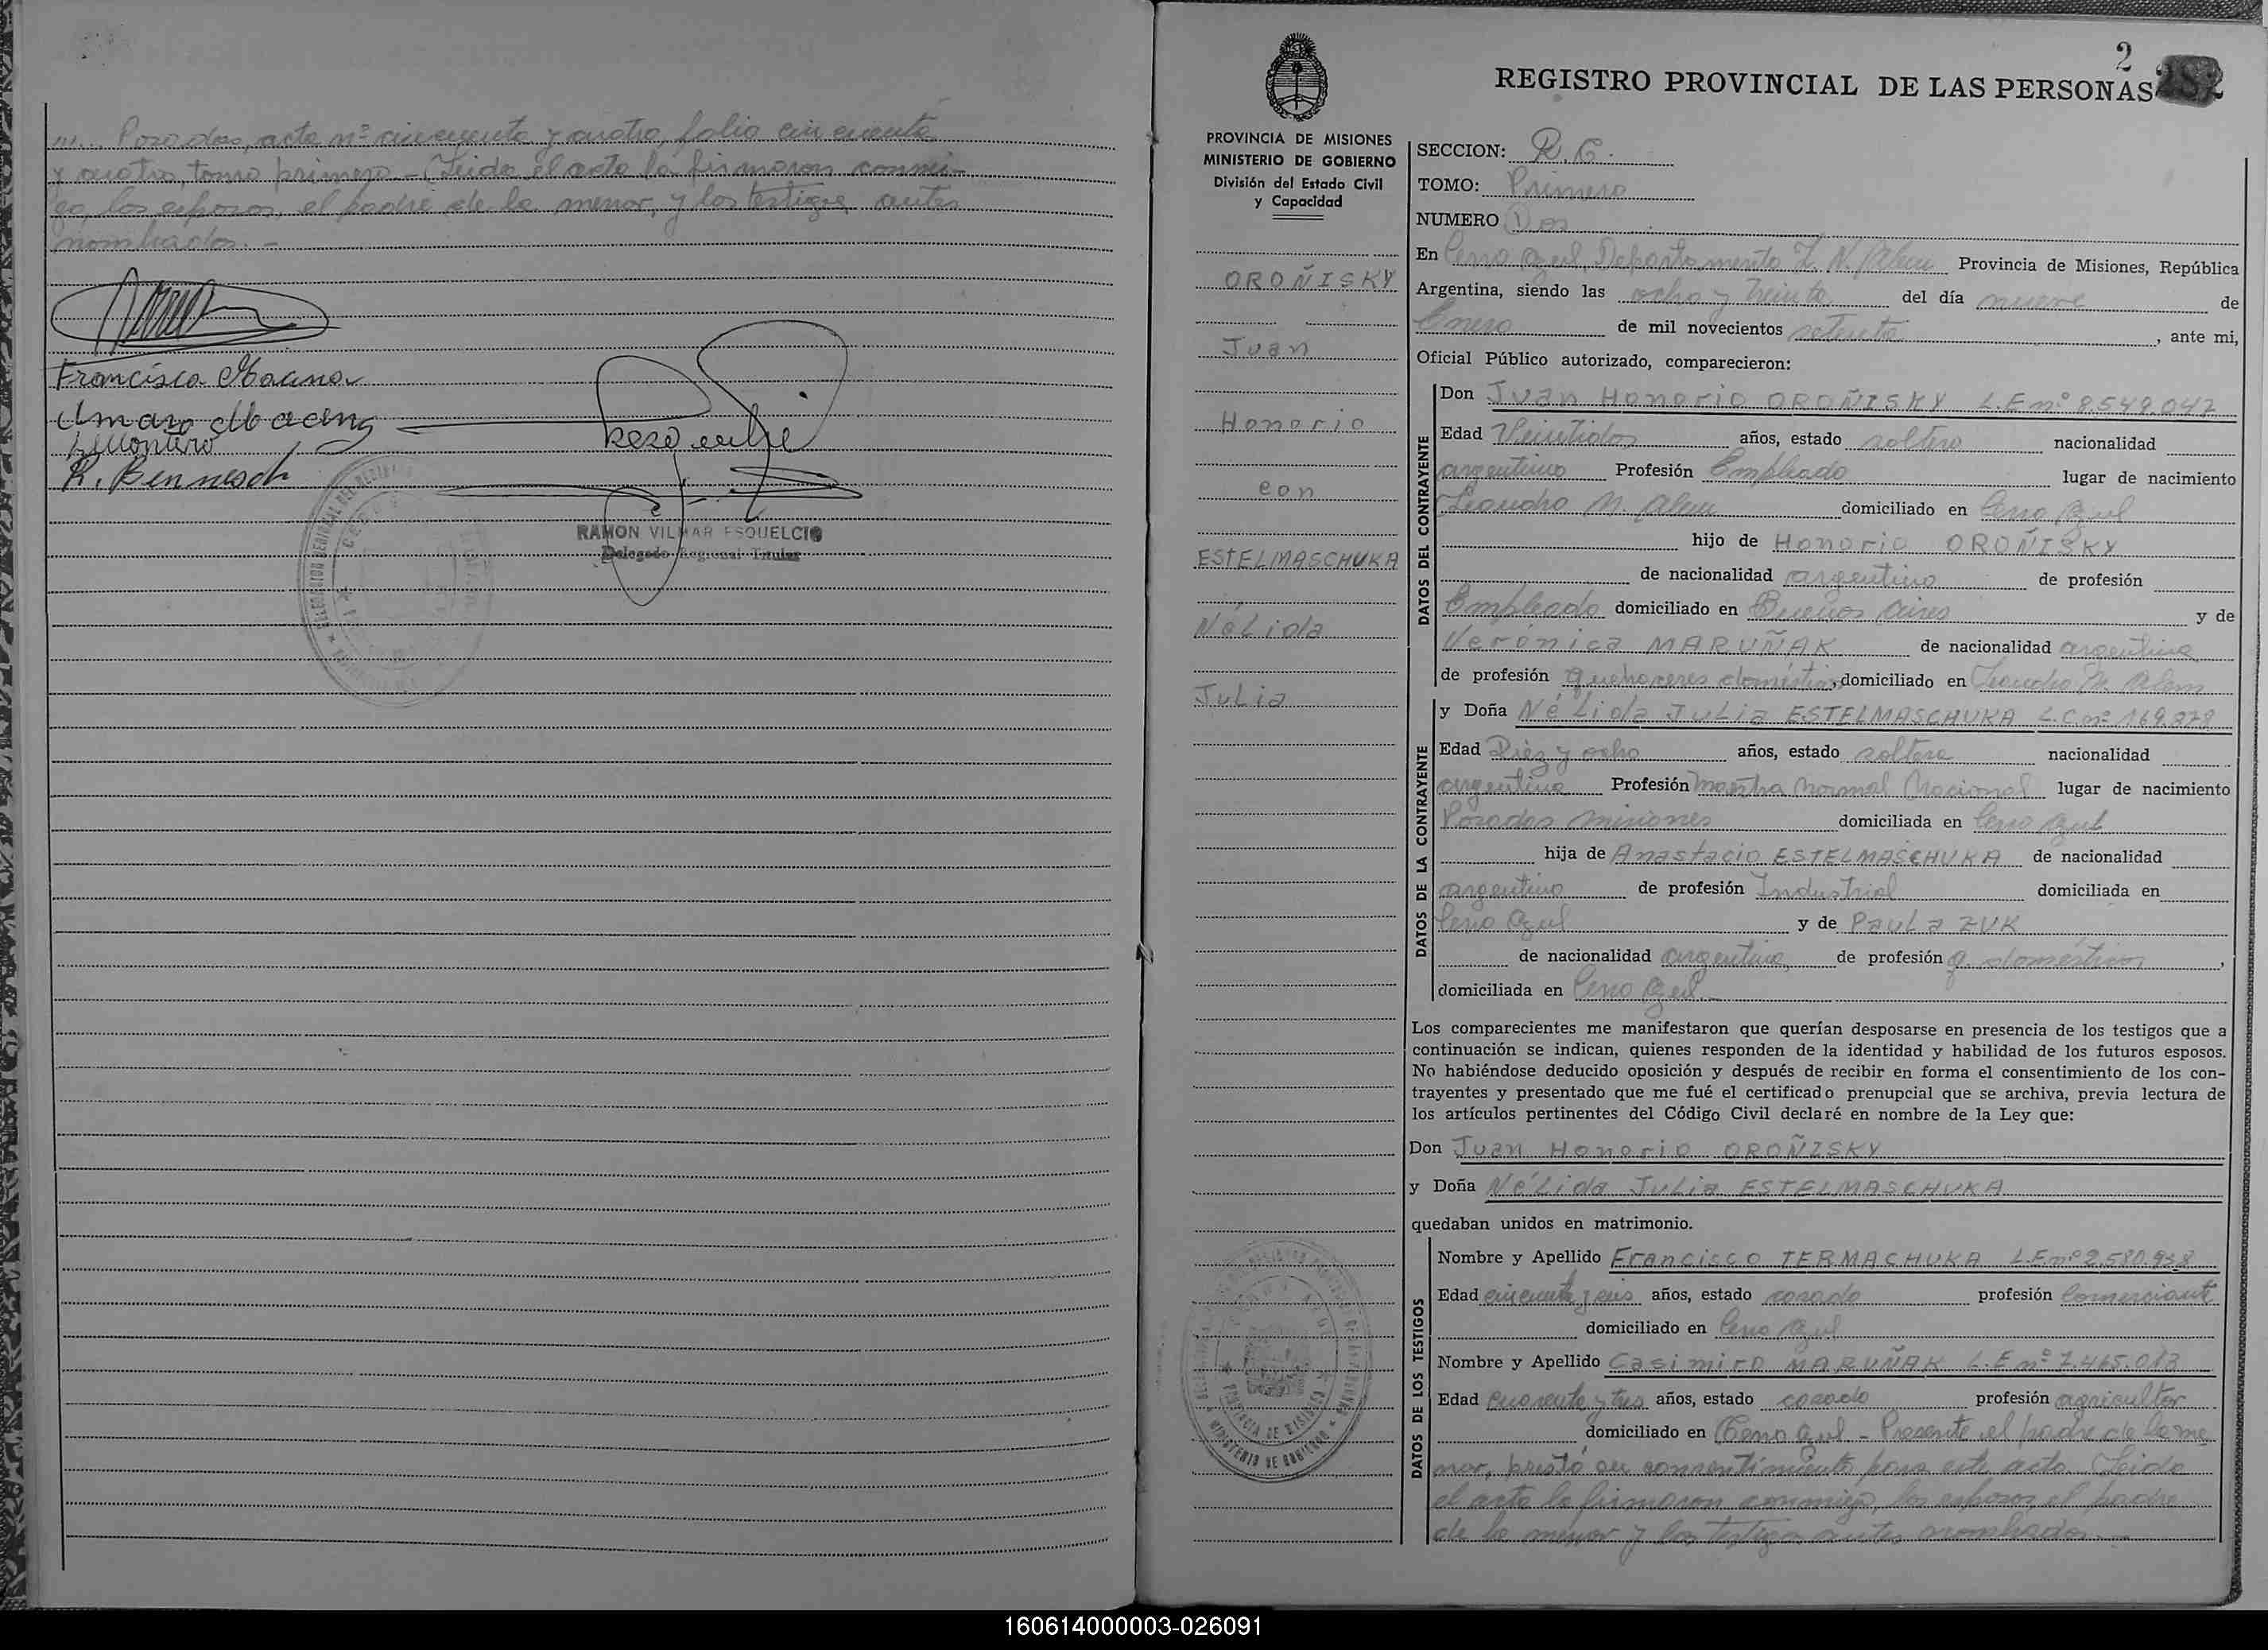 ... Posadas, acta nº cincuenta y cuatro, folio cincuenta
y cuatro, tomo primero.- Leida el acta la firmaron conmi-
go, los esposos, el padre de la menor, y los testigos antes
nombrados. -
Francisca
Amaro
R. Bennesch
RAMON VILMAR ESQUELCIO
Delegado Regional Titular
2
REGISTRO PROVINCIAL DE LAS PERSONAS
PROVINCIA DE MISIONES
MINISTERIO DE GOBIERNO
División del Estado Civil
y Capacidad
OROÑISKY
Juan
Honorio
con
ESTELMASCHUKA
NéLida
JuLia
SECCION: R.C.
TOMO: Primero
NUMERO Dos
En Cerro Azul, Departamento L. N. Alem Provincia de Misiones, República
Argentina, siendo las ocho y treinta del día nueve de
Enero de mil novecientos setenta, ante mi,
Oficial Público autorizado, comparecieron:
DATOS DEL CONTRAYENTE
Don Juan Honorio OROÑISKY L.E nº 8.549.047
Edad Veintidos años, estado soltero nacionalidad
argentino Profesión Empleado lugar de nacimiento
Leandro N. Alem domiciliado en Cerro Azul
hijo de Honorio OROÑISKY
de nacionalidad argentino de profesión
Empleado domiciliado en Buenos Aires y de
Verónica MARUÑAK de nacionalidad argentina
de profesión quehaceres domésticos, domiciliado en Leandro N. Alem
DATOS DE LA CONTRAYENTE
y Doña NéLida JuLia ESTELMASCHUKA L.C.nº 169.878
Edad Diez y ocho años, estado soltera nacionalidad
argentina Profesión Maestra Normal Nacional lugar de nacimiento
Posadas Misiones domiciliada en Cerro Azul
hija de Anastacio ESTELMASCHUKA de nacionalidad
argentino de profesión Industrial domiciliada en
Cerro Azul y de PauLa ZUK
de nacionalidad argentina de profesión q. domésticos,
domiciliada en Cerro Azul.
Los comparecientes me manifestaron que querían desposarse en presencia de los testigos que a
continuación se indican, quienes responden de la identidad y habilidad de los futuros esposos.
No habiéndose deducido oposición y después de recibir en forma el consentimiento de los con-
trayentes y presentado que me fué el certificado prenupcial que se archiva, previa lectura de
los artículos pertinentes del Código Civil declaré en nombre de la Ley que:
Don Juan Honorio OROÑISKY
y Doña NéLida JuLia ESTELMASCHUKA
quedaban unidos en matrimonio.
DATOS DE LOS TESTIGOS
Nombre y Apellido Francisco TERMACHUKA L.E.nº 2.580.938
Edad cincuenta y seis años, estado casado profesión Comerciante
domiciliado en Cerro Azul
Nombre y Apellido Casimiro MARUÑAK L.E nº 7.465.013
Edad cuarenta y tres años, estado casado profesión agricultor
domiciliado en Cerro Azul - Presente el padre de la me
nor, prestó su consentimiento para este acto. Leida
el acta la firmaron conmigo, los esposos, el padre
de la menor y los testigos antes nombrados. -
PROVINCIA DE MISIONES
MINISTERIO DE GOBIERNO
160614000003-026091